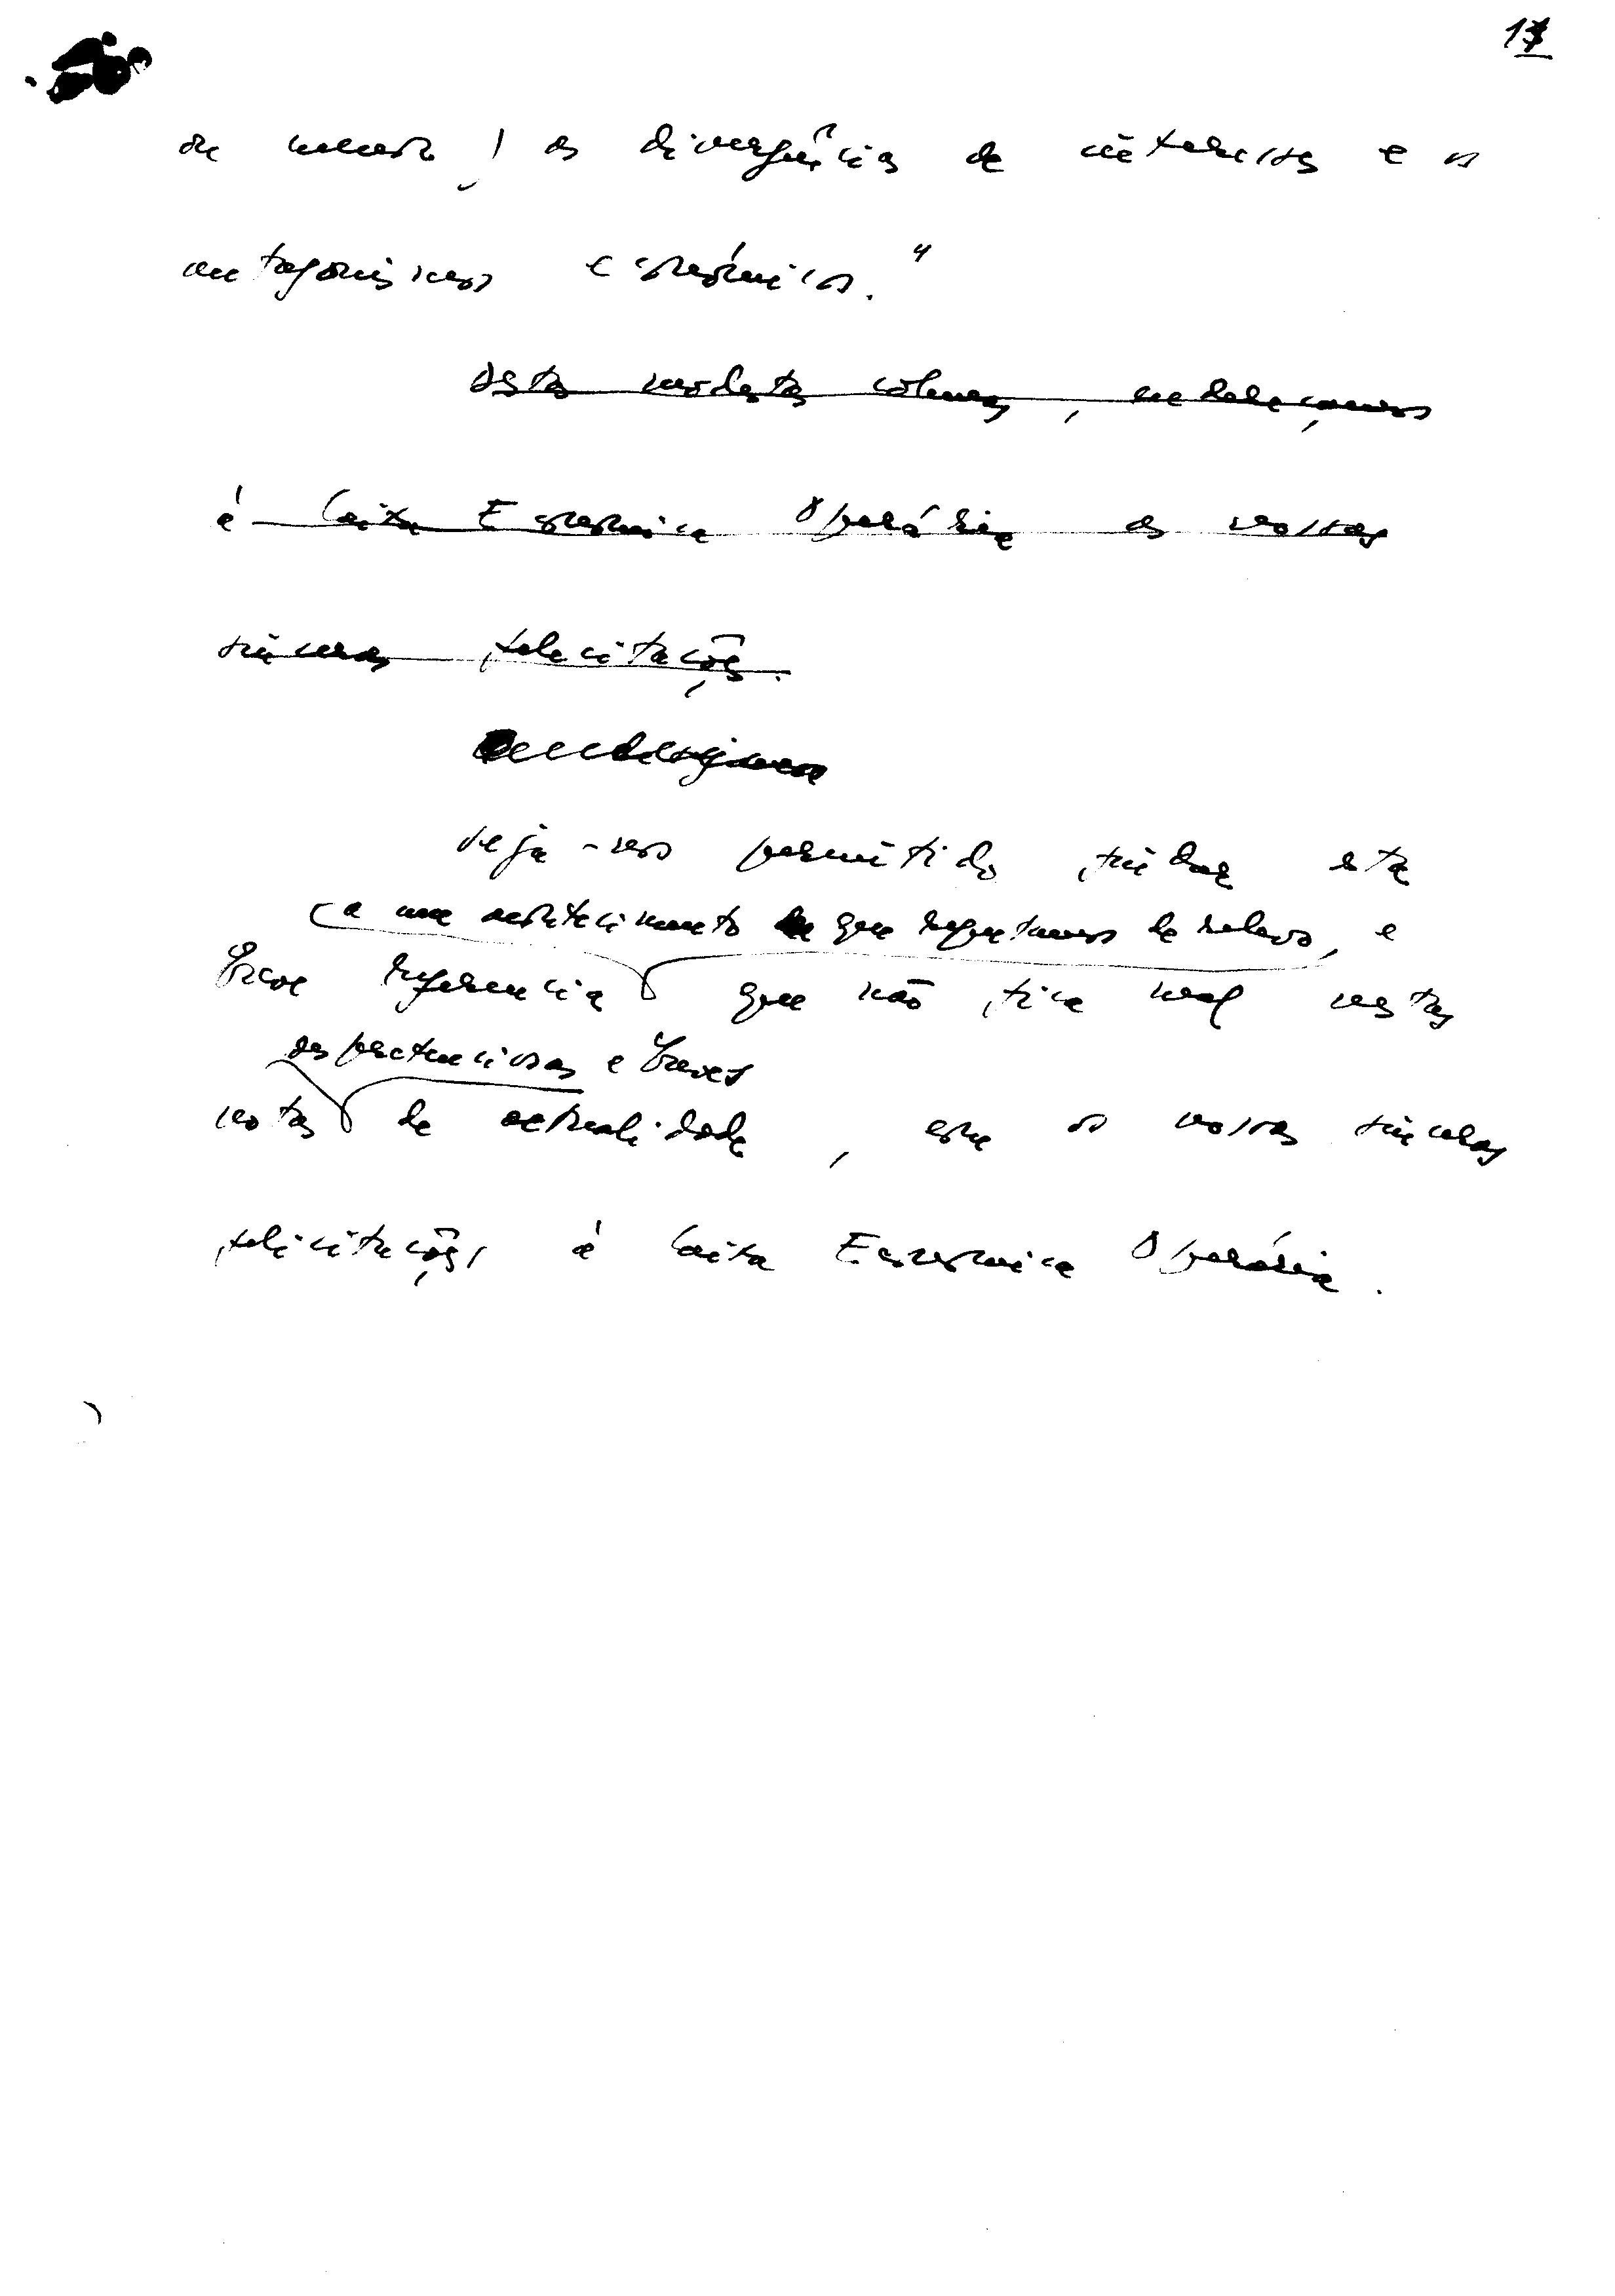 13
ou menor, as divergências de interesses e os
antagonismos económicos."
Destas modestas colunas, endereçamos
à Caixa Económica Operária as nossas
sinceras felicitações.
Seja-nos permitido findar esta
a um acontecimento que reputamos de relevo, e
breve referência que não fica mal nestas
despretenciosas e breves
notas de actualidade, com as nossas sinceras
felicitações, à Caixa Económica Operária.